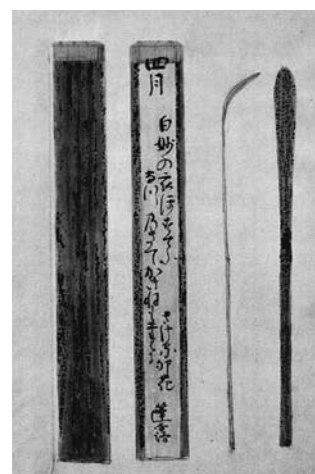 四月
白妙の衣ほすてふ
なつ乃きてかきねもたわに
さける卯花